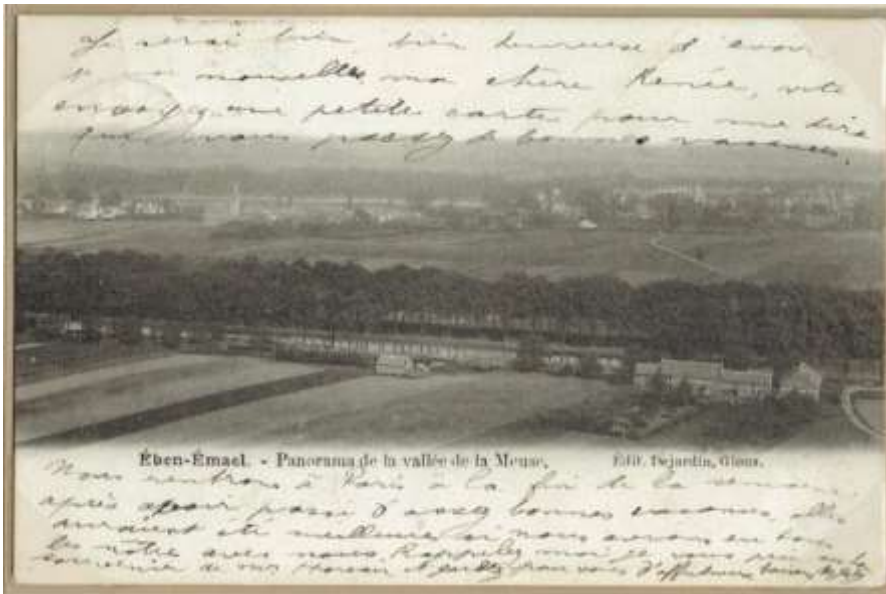 Je serai bien, bien heureuse d'avoir
nouvelles, ma chère Renée, vite
envoyez une petite carte pour me dire
que vous passez de bonnes vacances.
Ében-Émael. - Panorama de la vallée de la Meuse.
Édit. Dejardin, Glons.
Nous rentrons à Paris à la fin de la semaine,
après avoir passé d'assez bonnes vacances, elles
auraient été meilleures si nous avions eu tous
les nôtre avec nous. Rappelez moi je vous
souvenir de vos et pour vous d'affectueux baisers